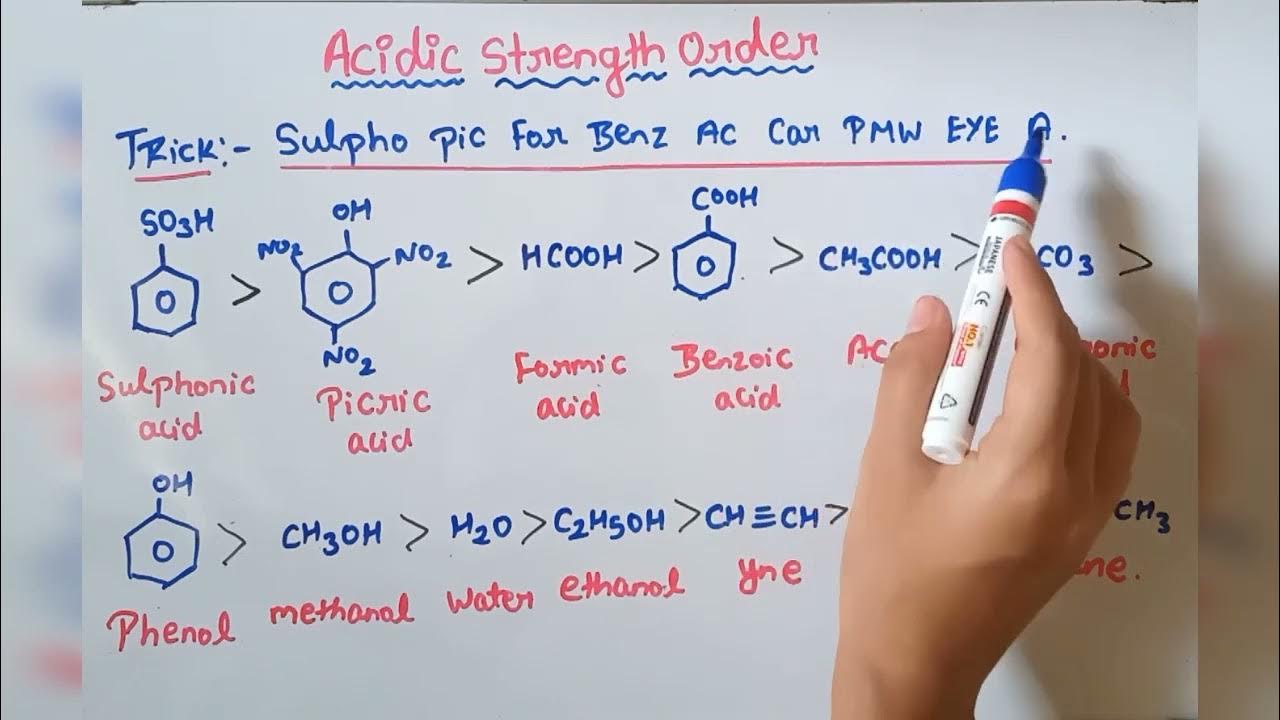 Acidic Strength Order
TRick:- Sulpho Pic For Benz AC Car PMW EYE A.
SO3H
OH
COOH
NO2
NO2
> > HCOOH > > CH3COOH > CO3 >
NO2
Sulphonic acid
Picric acid
Formic acid
Benzoic acid
OH
> CH3OH > H2O > C2H5OH > CH≡CH > CH3
Phenol methanal water ethanol yne